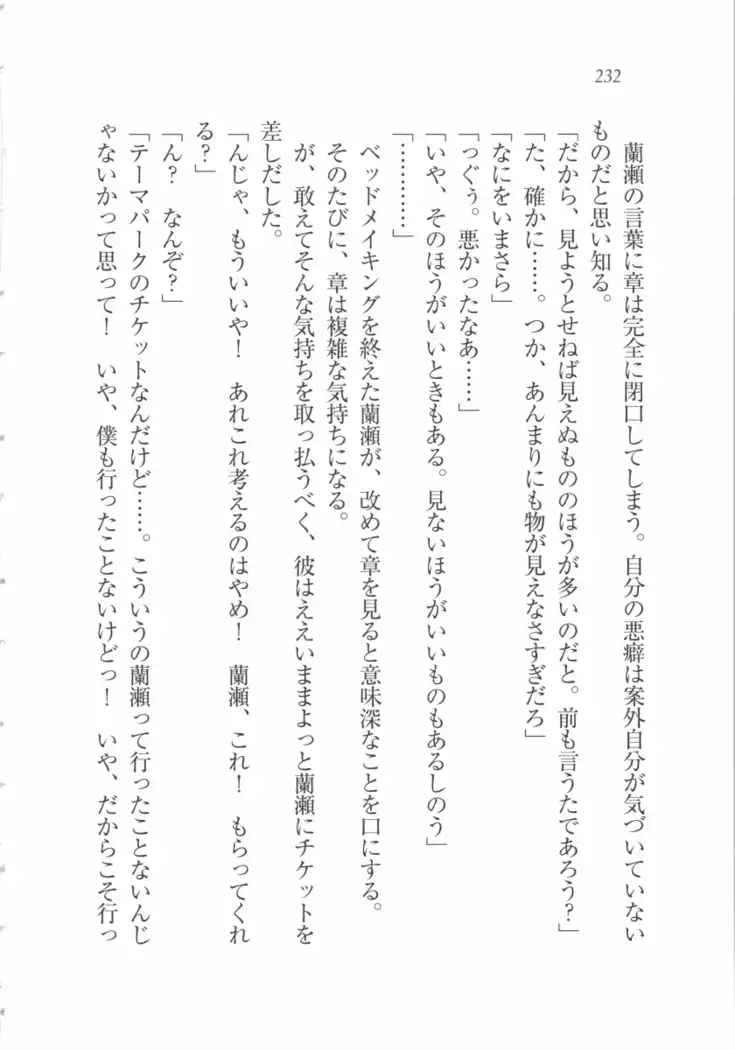 232
蘭瀬の言葉に章は完全に閉口してしまう。自分の悪癖は案外自分が気づいていない
ものだと思い知る。
「だから、見ようとせねば見えぬもののほうが多いのだと。前も言うたであろう？」
「た、確かに……。つか、あんまりにも物が見えなさすぎだろ」
「なにをいまさら」
「っぐぅ。悪かったなあ……」
「いや、そのほうがいいときもある。見ないほうがいいものもあるしのう」
「…………」
ベッドメイキングを終えた蘭瀬が、改めて章を見ると意味深なことを口にする。
そのたびに、章は複雑な気持ちになる。
が、敢えてそんな気持ちを取っ払うべく、彼はええいままよっと蘭瀬にチケットを
差しだした。
「んじゃ、もういいや！　あれこれ考えるのはやめ！　蘭瀬、これ！　もらってくれ
る？」
「ん？　なんぞ？」
「テーマパークのチケットなんだけど……。こういうの蘭瀬って行ったことないんじ
ゃないかって思って！　いや、僕も行ったことないけどっ！　いや、だからこそ行っ